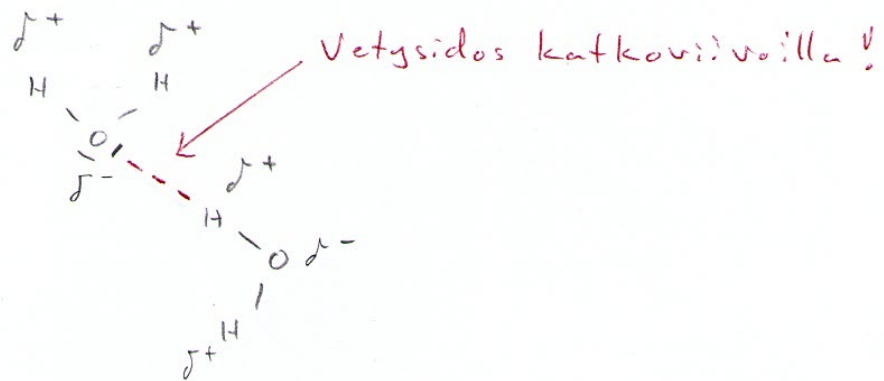 δ+ δ+
Vetysidos katkoviivoilla!
H H
O
δ-
δ+
H
O δ-
H
δ+